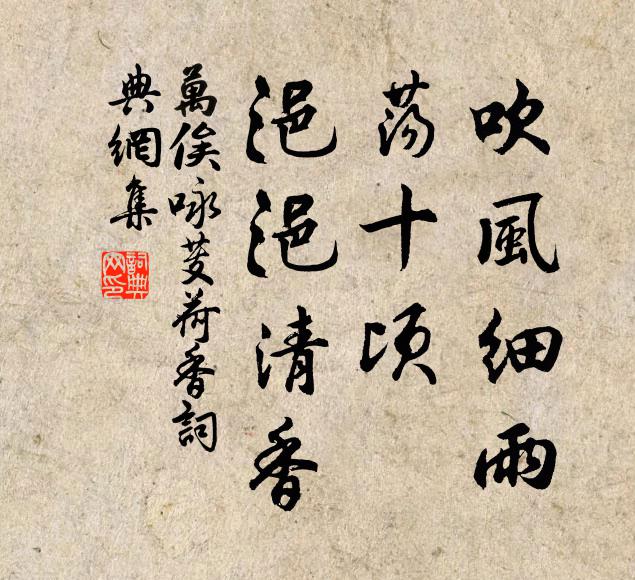 吹風細雨
蕩十頃
浥浥清香
萬俟咏芰荷香詞
典網集
詞典網印